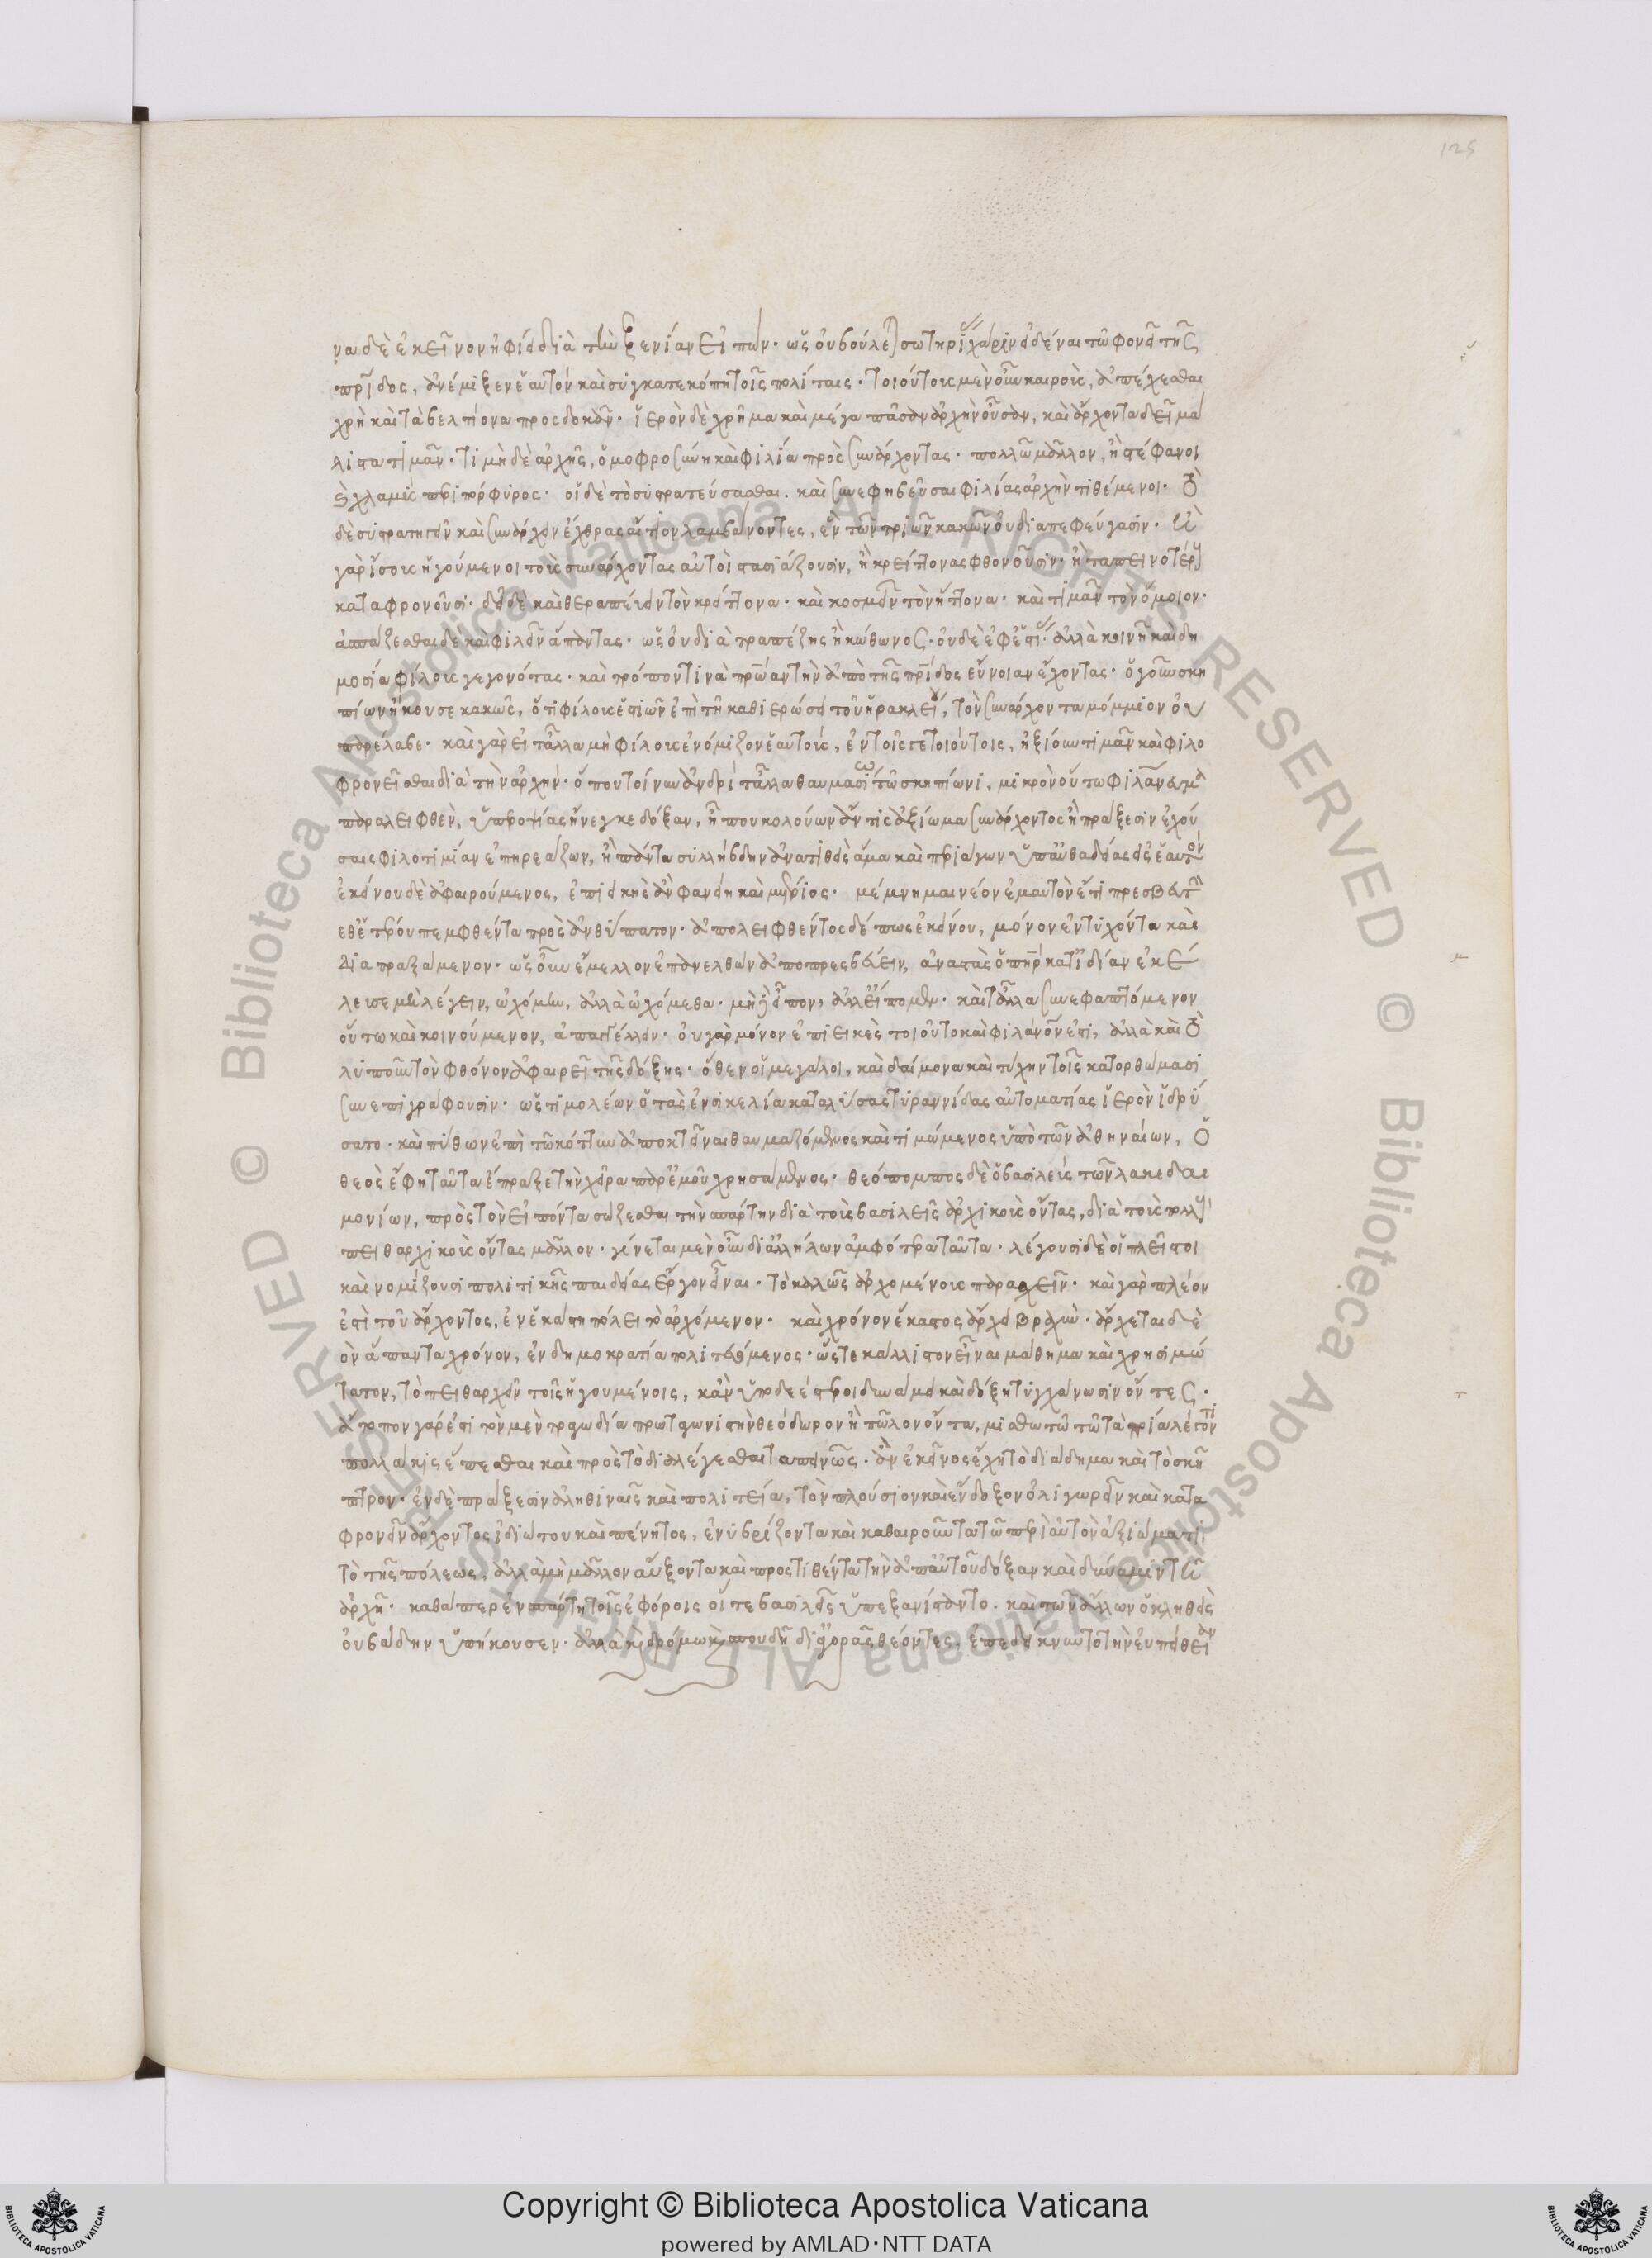 125
να δὲ ἐκεῖνον ἠφίει διὰ τὴν ξενίαν εἰπὼν. ὡς οὐ βούλεται σωτηρίας χάριν εἰδέναι τῶ φονεῖ τῆς
πατρίδος, ἀνέμιξεν ἑαυτὸν καὶ συγκατεκόπη τοῖς πολίταις. τοιούτοις μὲν οὖν καιροῖς, ἀπέχεσθαι
χρὴ καὶ τὰ βελτίονα προσδοκᾶν. ἱερὸν δὲ χρῆμα καὶ μέγα πᾶσαν ἀρχὴν οὖσαν, καὶ ἄρχοντα δεῖ μά
λιστα τιμᾶν. τιμὴ δὲ ἀρχῆς, ὁμοφροσύνη καὶ φιλία πρὸς συνάρχοντας. πολλῶ μᾶλλον, ἢ στέφανοι
καὶ χλαμὺς περιπόρφυρος. οἱ δὲ τὸ συστρατεύσασθαι. καὶ συνεφηβεῦσαι φιλίας ἀρχὴν τιθέμενοι. τὸ
δὲ συστρατηγεῖν καὶ συνάρχειν ἔχθρας αἴτιον λαμβάνοντες, ἓν τῶν τριῶν κακῶν οὐ διαπεφεύγασιν. ἢ
γὰρ ἴσους ἡγούμενοι τοὺς συνάρχοντας αὐτοὶ στασιάζουσιν, ἢ κρείττονας φθονοῦσιν. ἢ ταπεινοτέρους
καταφρονοῦσι. δεῖ δὲ καὶ θεραπεύειν τὸν κρείττονα. καὶ κοσμεῖν τὸν ἥττονα. καὶ τιμᾶν τὸν ὅμοιον.
ἀσπάζεσθαι δὲ καὶ φιλεῖν ἅπαντας. ὡς οὐ διὰ τραπέζης ἢ κώθωνος. οὐδὲ ἐφ' ἑστίας. ἀλλὰ κοινῆ καὶ δη
μοσία φίλους γεγονότας. καὶ τρόπον τινὰ πατρώαν τὴν ἀπὸ τῆς πατρίδος εὔνοιαν ἔχοντας. ὁ γοῦν σκη
πίων ἤκουσε κακῶς, ὅτι φίλους ἑστιῶν ἐπὶ τῆ καθιερώσει τοῦ ἡρακλείου, τὸν συνάρχοντα μόμμιον οὐ
παρέλαβε. καὶ γὰρ εἰ τἄλλα μὴ φίλους ἐνόμιζον ἑαυτοὺς, ἐν τοῖς γε τοιούτοις, ἠξίουν τιμᾶν καὶ φιλο
φρονεῖσθαι διὰ τὴν ἀρχήν. ὅπου τοίνυν ἀνδρὶ τἄλλα θαυμασίω τῶ σκηπίωνι, μικρὸν οὕτω φιλανθρώπευμα
παραλειφθὲν, ὑπεροψίας ἤνεγκε δόξαν, ἦ που κολούων ἄν τις ἀξίωμα συνάρχοντος ἢ πράξεσιν ἐχού
σαις φιλοτιμίαν ἐπηρεάζων, ἢ πάντα συλλήβδην ἀνατιθεὶς ἅμα καὶ περιάγων ὑπ' αὐθαδείας εἰς ἑαυτὸν
ἐκείνου δὲ ἀφαιρούμενος, ἐπιεικὴς ἂν φανείη καὶ μέτριος. μέμνημαι νέον ἐμαυτὸν ἔτι πρεσβευτὴν
μεθ' ἑτέρου πεμφθέντα πρὸς ἀνθύπατον. ἀπολειφθέντος δέ πως ἐκείνου, μόνον ἐντυχόντα καὶ
διαπραξάμενον. ὡς οὖν ἔμελλον ἐπανελθὼν ἀποπρεσβεύειν, ἀναστὰς ὁ πατὴρ κατ' ἰδίαν ἐκέ
λευσε μὴ λέγειν, ὠχόμην, ἀλλὰ ὠχόμεθα. μηδὲ εἶπον, ἀλλ' εἴπομεν. καὶ τἄλλα συνεφαπτόμενον
οὕτω καὶ κοινούμενον, ἀπαγγέλλειν. οὐ γὰρ μόνον ἐπιεικὲς τοιοῦτο καὶ φιλάνθρωπόν ἐστι, ἀλλὰ καὶ τὸ
λυποῦν τὸν φθόνον ἀφαιρεῖ τῆς δόξης. ὅθεν οἱ μεγάλοι, καὶ δαίμονα καὶ τύχην τοῖς κατορθώμασι
συνεπιγράφουσιν. ὡς τιμολέων ὁ τὰς ἐν σικελία καταλύσας τυραννίδας αὐτοματίας ἱερὸν ἱδρύ
σατο. καὶ πύθων ἐπὶ τῶ κότυν ἀποκτεῖναι θαυμαζόμενος καὶ τιμώμενος ὑπὸ τῶν ἀθηναίων, ὁ
θεὸς ἔφη ταῦτα ἔπραξε τὴν χεῖρα παρ' ἐμοῦ χρησάμενος. θεόπομπος δὲ ὁ βασιλεὺς τῶν λακεδαι
μονίων, πρὸς τὸν εἰπόντα σώζεσθαι τὴν σπάρτην διὰ τοὺς βασιλεῖς ἀρχικοὺς ὄντας, διὰ τοὺς πολλοὺς
πειθαρχικοὺς ὄντας μᾶλλον. γίνεται μὲν οὖν δι' ἀλλήλων ἀμφότερα ταῦτα. λέγουσι δὲ οἱ πλεῖστοι
καὶ νομίζουσι πολιτικῆς παιδείας ἔργον εἶναι. τὸ καλῶς ἀρχομένους παρασχεῖν. καὶ γὰρ πλέον
ἐστὶ τοῦ ἄρχοντος, ἐν ἑκάστη πόλει τὸ ἀρχόμενον. καὶ χρόνον ἕκαστος ἄρχει βραχὺν. ἄρχεται δὲ
τὸν ἅπαντα χρόνον, ἐν δημοκρατία πολιτευόμενος. ὥστε κάλλιστον εἶναι μάθημα καὶ χρησιμώ
τατον, τὸ πειθαρχεῖν τοῖς ἡγουμένοις, κἂν ὑποδεέστεροι δυνάμει καὶ δόξη τυγχάνωσιν ὄντες.
ἄτοπον γάρ ἐστι τὸν μὲν τραγωδία πρωταγωνιστὴν θεόδωρον ἢ πῶλον ὄντα, μισθωτῶ τῶ τὰ τρία λέγοντι
πολλάκις ἕπεσθαι καὶ προστὸδιαλέγεσθαι ταπεινῶς. ἂν ἐκεῖνος ἔχη τὸ διάδημα καὶ τὸ σκῆ
πτρον. ἐν δὲ πράξεσιν ἀληθιναῖς καὶ πολιτεία, τὸν πλούσιον καὶ ἔνδοξον ὀλιγωρεῖν καὶ κατα
φρονεῖν ἄρχοντος ἰδιώτου καὶ πένητος, ἐνυβρίζοντα καὶ καθαιροῦντα τῶ περὶ αὐτὸν ἀξιώματι,
τὸ τῆς πόλεως. ἀλλὰ μὴ μᾶλλον αὔξοντα καὶ προστιθέντα τὴν ἀπ' αὐτοῦ δόξαν καὶ δύναμιν τῆ
ἀρχῆ. καθάπερ ἐν σπάρτη τοῖς ἐφόροις οἵ τε βασιλεῖς ὑπεξανίσταντο. καὶ τῶν ἄλλων ὁ κληθεὶς
οὐ βάδην ὑπήκουσεν. ἀλλὰ καὶ δρόμω καὶ σπουδῆ δι' ἀγορᾶς θέοντες, ἐπεδείκνυντο τὴν εὐπείθειαν
© Biblioteca Apostolica Vicana ALL RIGHTS RESERVED
Copyright © Biblioteca Apostolica Vaticana
powered by AMLAD·NTT DATA
BIBLIOTECA APOSTOLICA VATICANA
BIBLIOTECA APOSTOLICA VATICANA